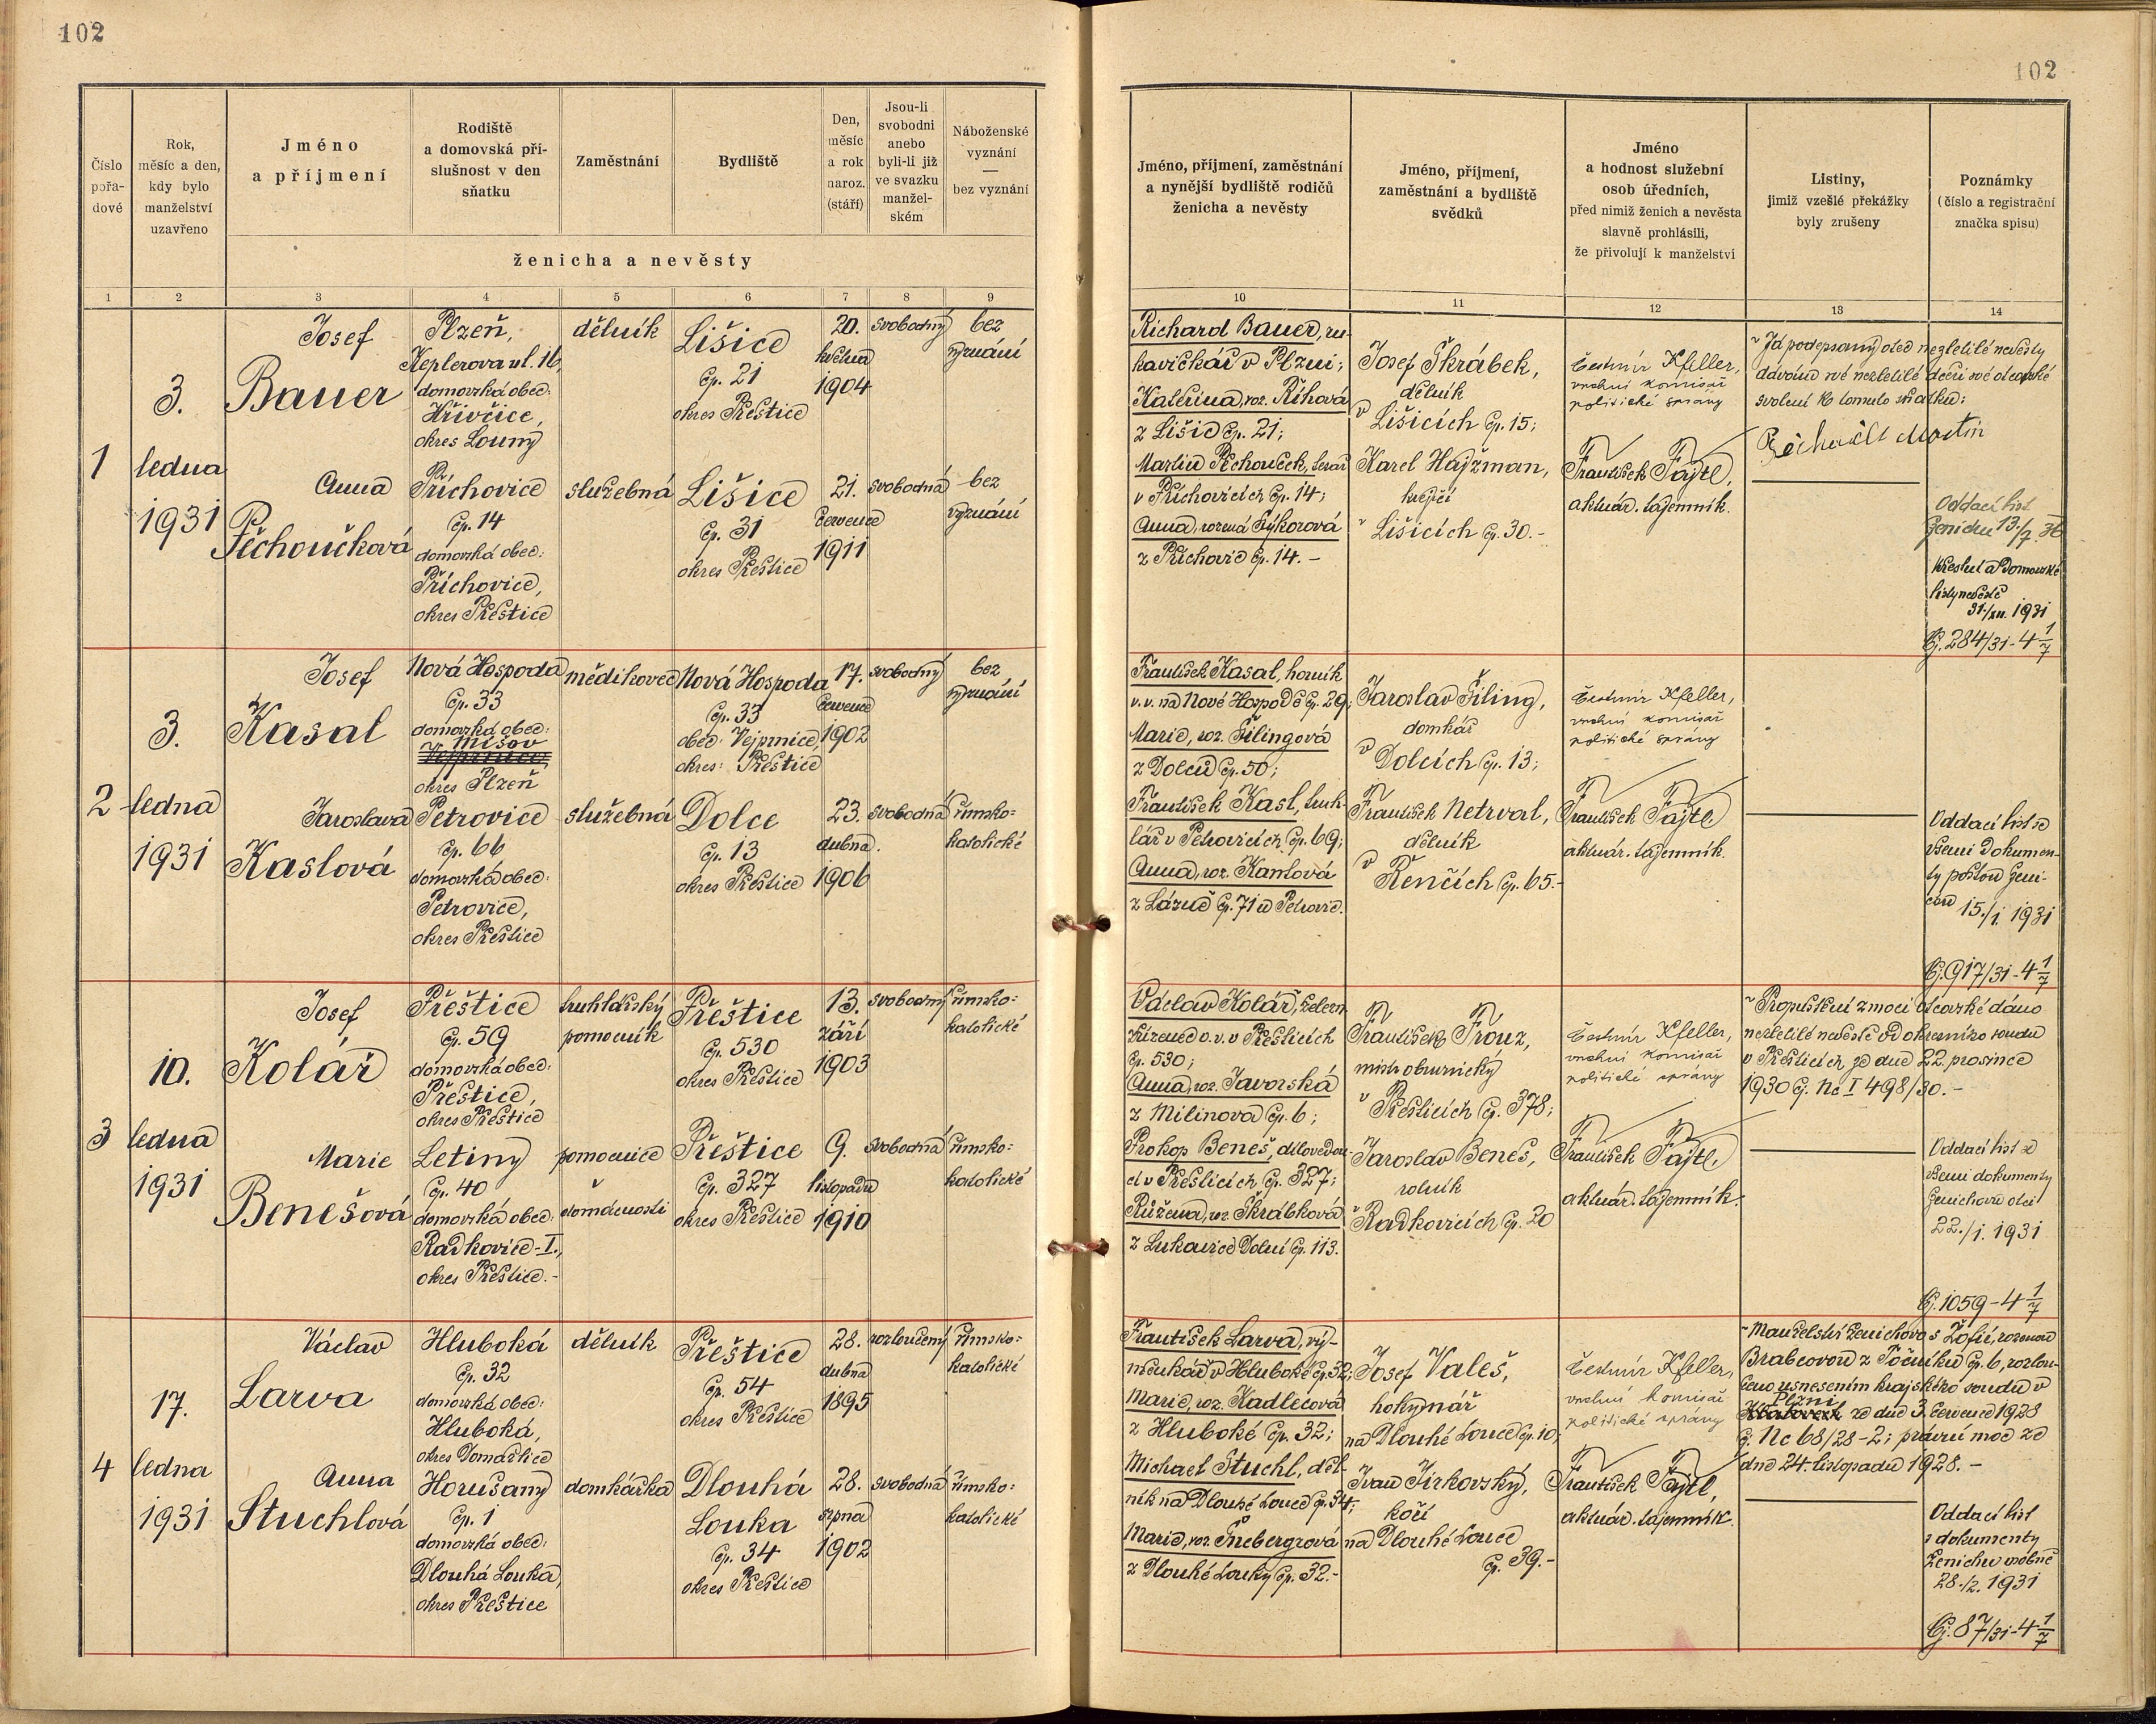 102
102
Číslo pořa- dové
Rok, měsíc a den, kdy bylo manželství uzavřeno
Jméno a příjmení
Rodiště a domovská pří- slušnost v den sňatku
Zaměstnání
Bydliště
Den, měsíc a rok naroz. (stáří)
Jsou-li svobodni anebo byli-li již ve svazku manžel- ském
Náboženské vyznání — bez vyznání
ženicha a nevěsty
Jméno, příjmení, zaměstnání a nynější bydliště rodičů ženicha a nevěsty
Jméno, příjmení, zaměstnání a bydliště svědků
Jméno a hodnost služební osob úředních, před nimiž ženich a nevěsta slavně prohlásili, že přivolují k manželství
Listiny, jimiž vzešlé překážky byly zrušeny
Poznámky (číslo a registrační značka spisu)
1 2 3 4 5 6 7 8 9 10 11 12 13 14
1
3.
ledna
1931
Josef
Bauer
Plzeň,
Keplerova ul. 16,
domovská obec:
Hřivčice,
okres Louny
dělník
Lišice
čp. 21
okres Přeštice
20.
května
1904
svobodný
bez
vyznání
Anna
Pěchoučková
Příchovice
čp. 14
domovská obec:
Příchovice,
okres Přeštice
služebná
Lišice
čp. 31
okres Přeštice
21.
července
1911
svobodná
bez
vyznání
Richard Bauer, ru-
kavičkář v Plzni;
Kateřina, roz. Říhová
z Lišic čp. 21;
Martin Pěchouček, tesař
v Příchovicích čp. 14;
Anna, rozená Sýkorová
z Příchovic čp. 14.-
Josef Škrábek,
dělník
v Lišicích čp. 15;
Karel Hajžman,
krejčí
v Lišicích čp. 30.-
Čestmír Kfeller,
vrchní komisař
politické správy
František Fajtl,
aktuár. tajemník.
Já podepsaný otec nezletilé nevěsty
dávám své nezletilé dceři své otcovské
svolení k tomuto sňatku:
Pěchouček Martin
Oddací list
ženichu 13./7. 36
Křestní a Domovské
listy nevěstě
31./XII. 1931
Čj. 284/31-4 1/7
2
3.
ledna
1931
Josef
Kasal
Nová Hospoda
čp. 33
domovská obec:
v Míšov
Vejprnice,
okres Plzeň
mědikovec
Nová Hospoda
čp. 33
obec: Vejprnice,
okres: Přeštice
17.
července
1902
svobodný
bez
vyznání
Jaroslava
Kaslová
Petrovice
čp. 66
domovská obec:
Petrovice,
okres Přeštice
služebná
Dolce
čp. 13
okres Přeštice
23.
dubna.
1906
svobodná
římsko-
katolické
František Kasal, horník
v.v. na Nové Hospodě čp. 29;
Marie, roz. Šilingová
z Dolců čp. 50;
František Kasl, truh-
lář v Petrovicích čp. 69;
Anna, roz. Kantová
z Lázně čp. 71 u Petrovic.
Jaroslav Šiling,
domkář
v Dolcích čp. 13;
František Netrval,
dělník
v Řenčích čp. 65.-
Čestmír Kfeller,
vrchní komisař
politické správy
František Fajtl
aktuár. tajemník.
Oddací list se
všemi dokumen-
ty poštou ženi-
chu
15./1. 1931
Čj. 917/31-4 1/7
3
10.
ledna
1931
Josef
Kolář
Přeštice
čp. 59
domovská obec:
Přeštice,
okres Přeštice
truhlářský
pomocník
Přeštice
čp. 530
okres Přeštice
13.
září
1903
svobodný
římsko-
katolické
Marie
Benešová
Letiny
čp. 40
domovská obec:
Radkovice-I.,
okres Přeštice.-
pomocnice
v domácnosti
Přeštice
čp. 327
okres Přeštice
9.
listopadu
1910
svobodná
římsko-
katolické
Václav Kolář, železn.
zřízenec o.v. v Přešticích
čp. 530;
Anna, roz. Javorská
z Milinova čp. 6;
Prokop Beneš, dělovedou-
cí v Přešticích čp. 327;
Růžena, roz. Škrábková
z Lukavice Dolní čp. 113.
František Frouz,
mistr obuvnický
v Přešticích čp. 378;
Jaroslav Beneš,
rolník
v Radkovicích čp. 20
Čestmír Kfeller,
vrchní komisař
politické správy
František Fajtl,
aktuár. tajemník.
Propuštění z moci otcovské dáno
nezletilé nevěstě od okresního soudu
v Přešticích ze dne 22. prosince
1930 čj. Nc I 498/30.-
Oddací list se
všemi dokumenty
ženichovu otci
22./1. 1931
Čj. 1059-4 1/7
4
17.
ledna
1931
Václav
Larva
Hluboká
čp. 32
domovská obec:
Hluboká,
okres Domažlice
dělník
Přeštice
čp. 54
okres Přeštice
28.
dubna
1895
rozloučený
římsko-
katolické
Anna
Stuchlová
Horušany
čp. 1
domovská obec:
Dlouhá Louka,
okres Přeštice
domkářka
Dlouhá
Louka
čp. 34
okres Přeštice
28.
srpna
1902
svobodná
římsko-
katolické
František Larva, vý-
měnkář v Hluboké čp. 32;
Marie, roz. Kadlecová
z Hluboké čp. 32;
Michael Stuchl, děl-
ník na Dlouhé Louce čp. 34;
Marie, roz. Šnebergrová
z Dlouhé Louky čp. 32.-
Josef Valeš,
hokynář
na Dlouhé Louce čp. 10;
Ivan Jirkovský,
kočí
na Dlouhé Louce
čp. 39.-
Čestmír Kfeller,
vrchní komisař
politické správy
František Fajtl,
aktuár. tajemník.
Manželství ženichovo s Žofií, rozenou
Brabcovou z Točníku čp. 6, rozlou-
čeno usnesením krajského soudu v
Plzni
Klatovech ze dne 3. července 1928
čj. Nc 68/28-2; právní moc ze
dne 24. listopadu 1928.-
Oddací list
s dokumenty
ženichu osobně
28./2. 1931
Čj. 87/31-4 1/7